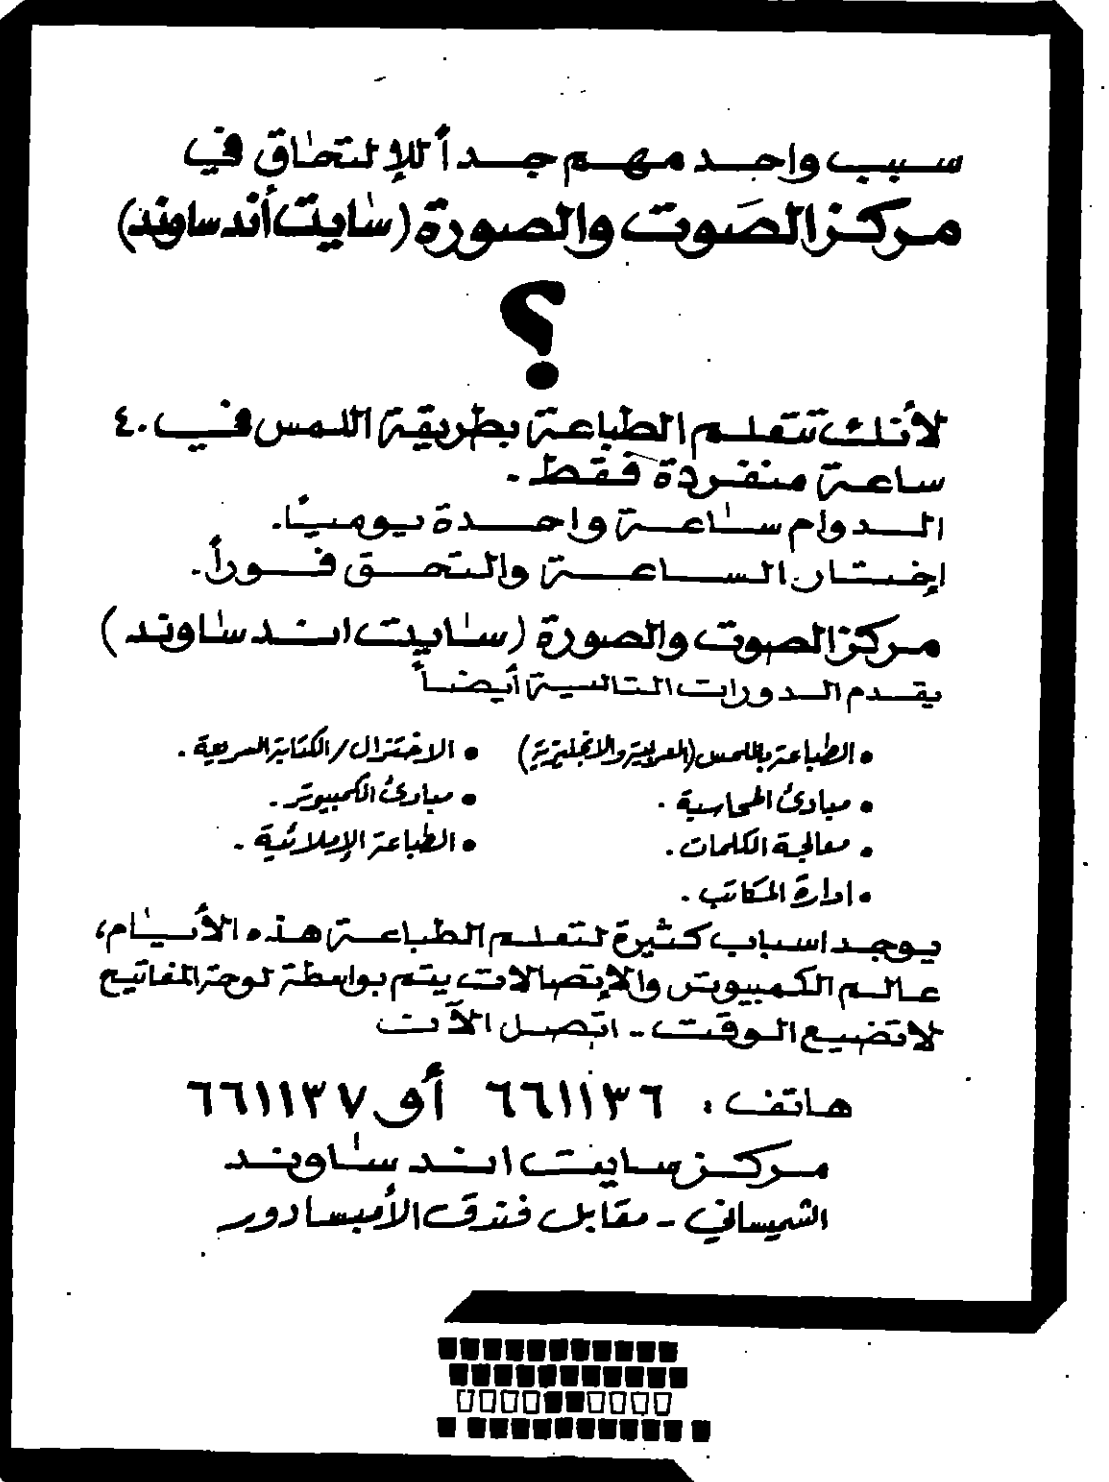 سبب واحد مهم جداً للإلتحاق في
مركز الصَوت والصورة (سايت أند ساوند)
؟
لأنك تتعلم الطباعة بطريقة اللمس في ٤٠
ساعة منفردة فقط.
الدوام ساعة واحدة يومياً.
إختار الساعة والتحق فوراً.
مركز الصوت والصورة (سايت اند ساوند)
يقدم الدورات التالية أيضاً
• الطباعة باللمس (العربية والانجليزية) • الاختزال/الكتابة السريعة.
• مبادئ المحاسبة. • مبادئ الكمبيوتر.
• معالجة الكلمات. • الطباعة الإملائية.
• ادارة المكاتب.
يوجد اسباب كثيرة لتعلم الطباعة هذه الأيام،
عالم الكمبيوتر والإتصالات يتم بواسطة لوحة المفاتيح
لا تضيع الوقت - اتصل الآن
هاتف: ٦٦١١٣٦ أو ٦٦١١٣٧
مركز سايت اند ساوند
الشميساني - مقابل فندق الأمبسادور